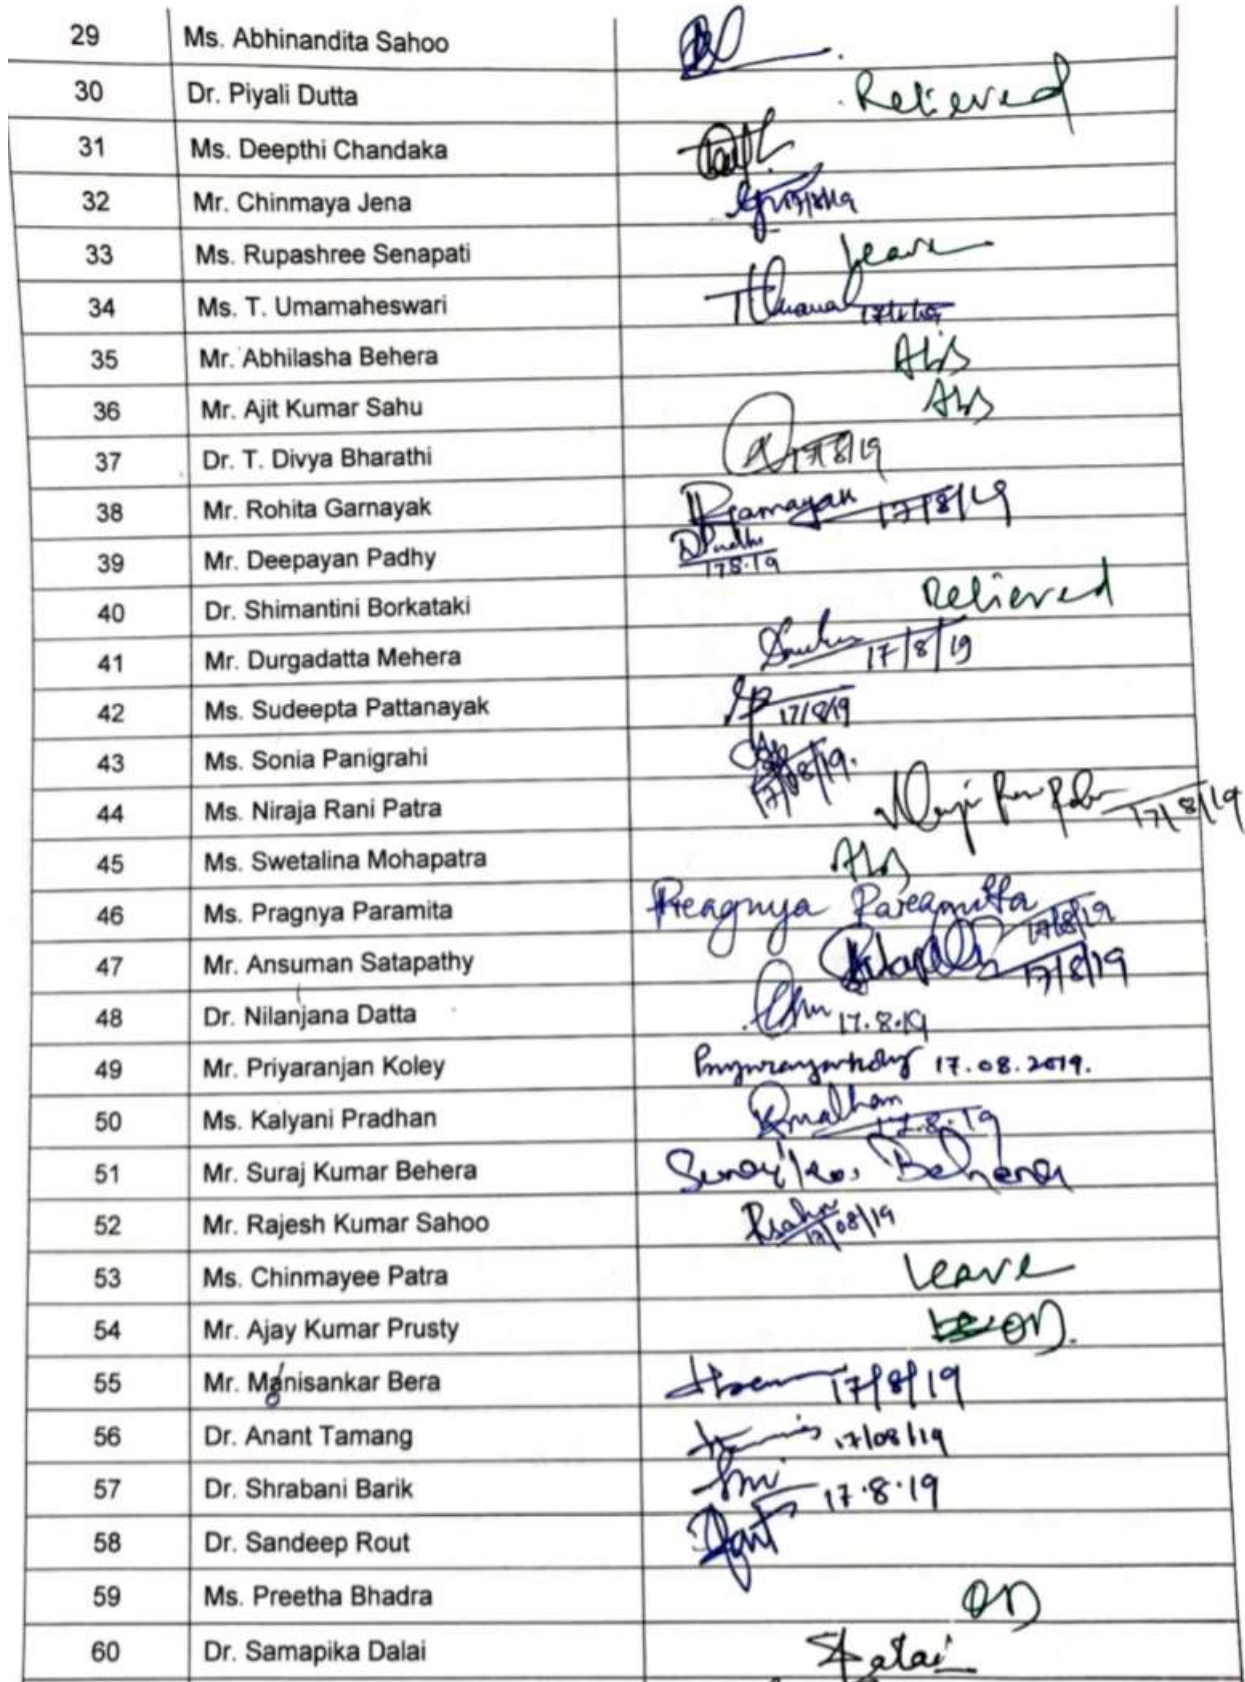 29 Ms. Abhinandita Sahoo
30 Dr. Piyali Dutta Relieved
31 Ms. Deepthi Chandaka
32 Mr. Chinmaya Jena
33 Ms. Rupashree Senapati Leave
34 Ms. T. Umamaheswari
35 Mr. Abhilasha Behera Abs
36 Mr. Ajit Kumar Sahu Abs
37 Dr. T. Divya Bharathi 17/8/19
38 Mr. Rohita Garnayak 17/8/19
39 Mr. Deepayan Padhy 17.8.19
40 Dr. Shimantini Borkataki Relieved
41 Mr. Durgadatta Mehera 17/8/19
42 Ms. Sudeepta Pattanayak 17/8/19
43 Ms. Sonia Panigrahi 17/08/19.
44 Ms. Niraja Rani Patra 17/8/19
45 Ms. Swetalina Mohapatra Abs
46 Ms. Pragnya Paramita Pragnya Paramita 17/8/19
47 Mr. Ansuman Satapathy 17/8/19
48 Dr. Nilanjana Datta 17.8.19
49 Mr. Priyaranjan Koley Priyaranjan Koley 17.08.2019.
50 Ms. Kalyani Pradhan 17.8.19
51 Mr. Suraj Kumar Behera Suraj Ku. Behera
52 Mr. Rajesh Kumar Sahoo 17/08/19
53 Ms. Chinmayee Patra Leave
54 Mr. Ajay Kumar Prusty OD.
55 Mr. Manisankar Bera 17/8/19
56 Dr. Anant Tamang 17/08/19
57 Dr. Shrabani Barik 17.8.19
58 Dr. Sandeep Rout
59 Ms. Preetha Bhadra OD
60 Dr. Samapika Dalai SDalai